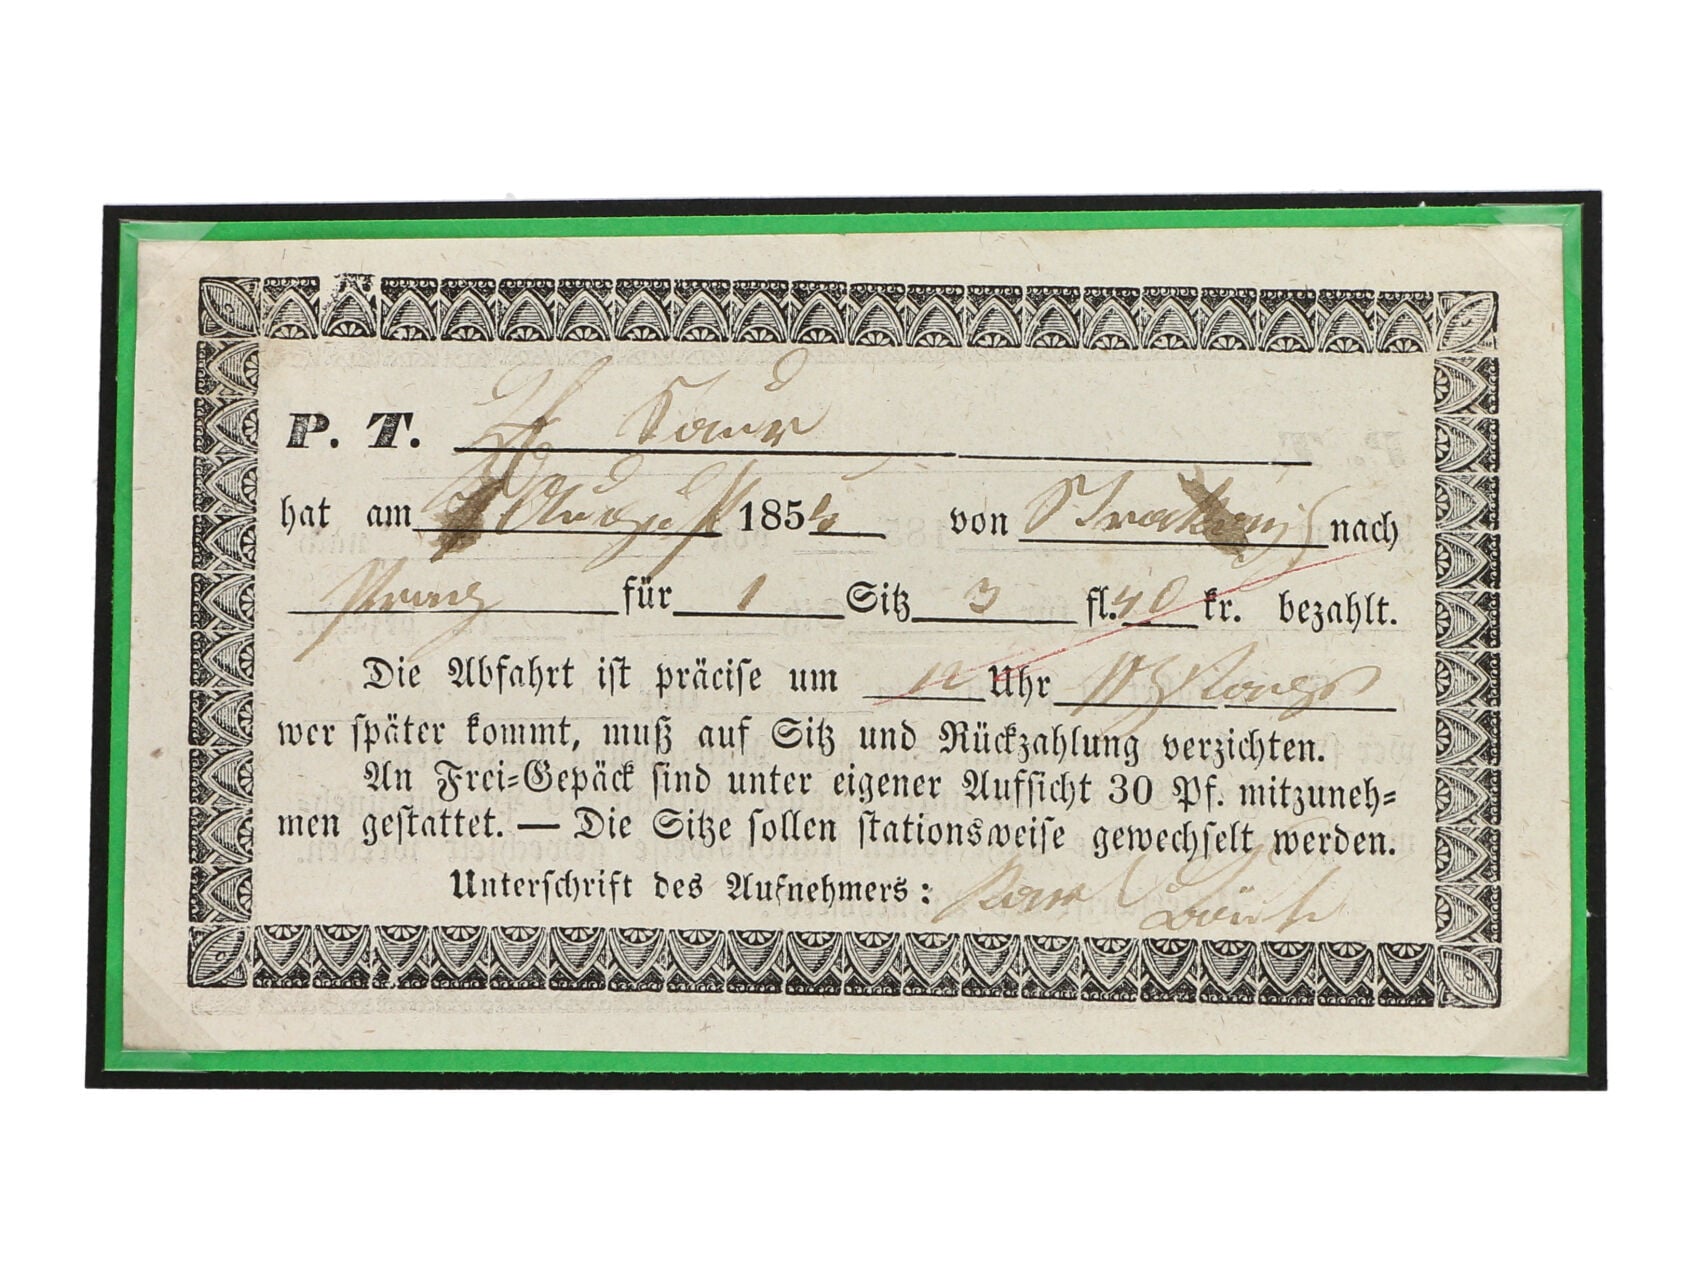 P. T. H Saur
hat am August 1854 von Strakonitz nach
Prag für 1 Sitz 3 fl. 40 kr. bezahlt.
Die Abfahrt ist präcise um 10 Uhr
wer später kommt, muß auf Sitz und Rückzahlung verzichten.
An Frei-Gepäck sind unter eigener Aufsicht 30 Pf. mitzuneh-
men gestattet. — Die Sitze sollen stationsweise gewechselt werden.
Unterschrift des Aufnehmers: